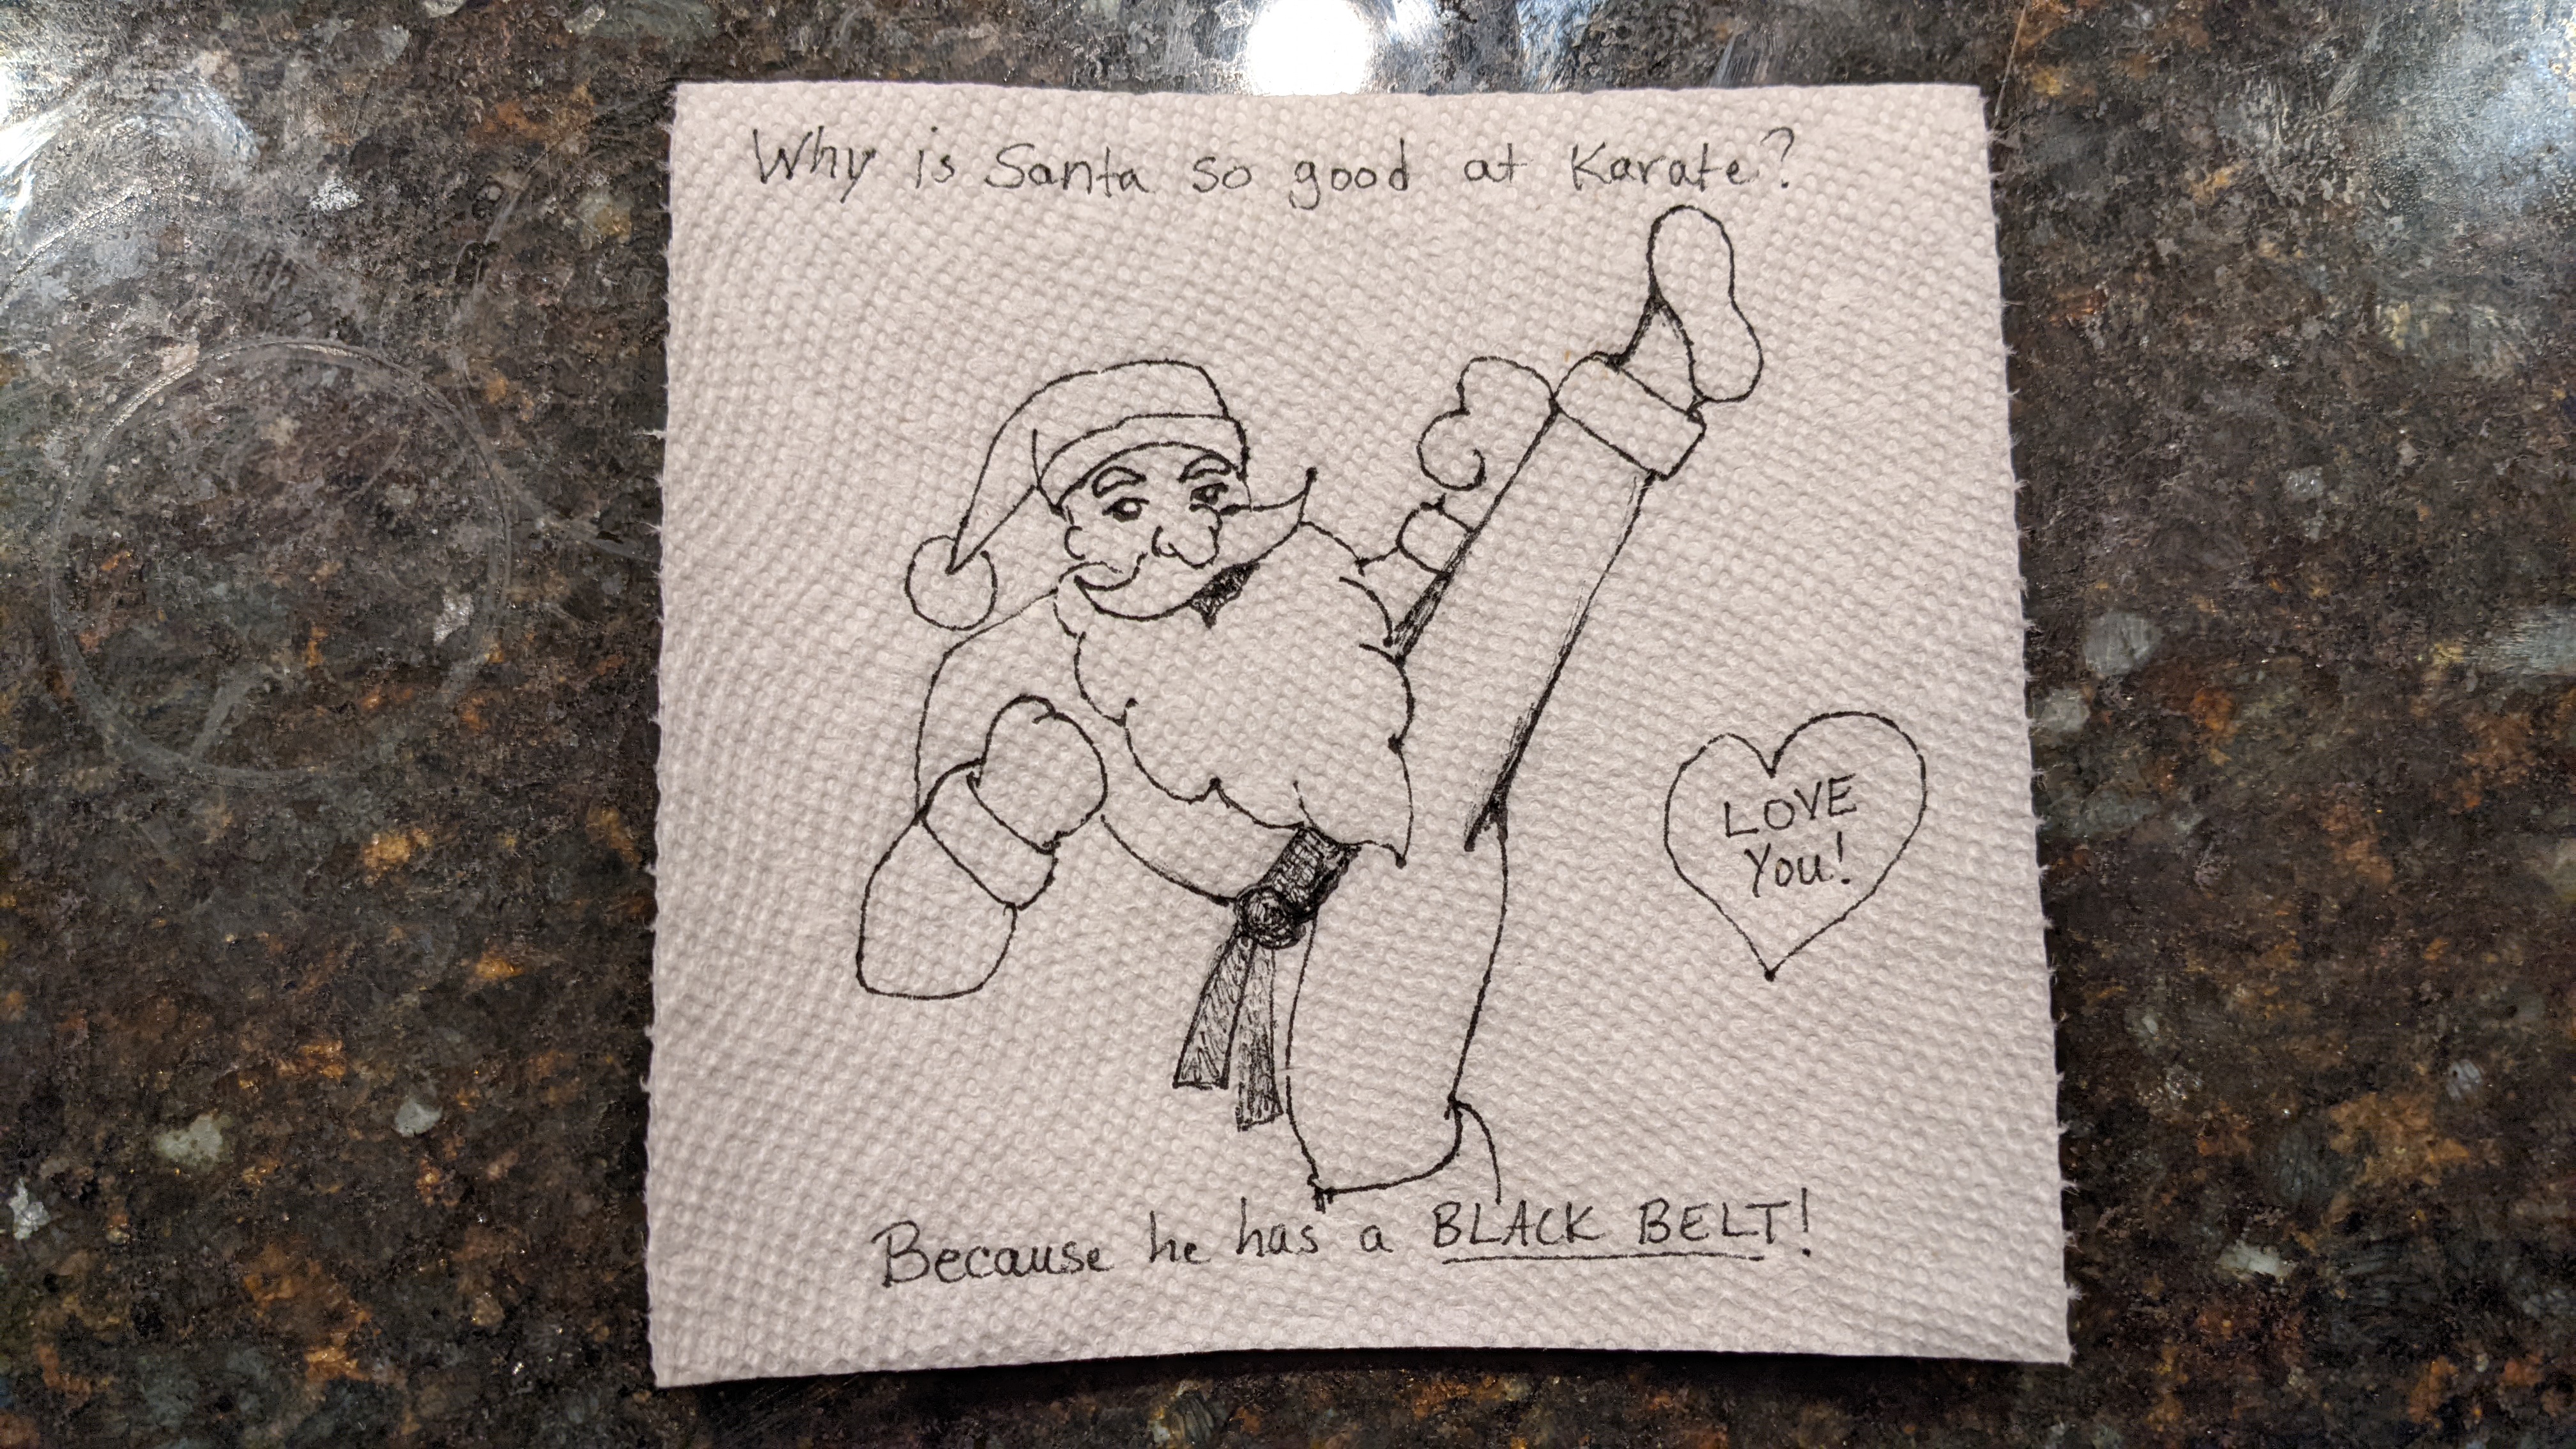 Why is Santa so good at Karate?
LOVE
You!
Because he has a BLACK BELT!